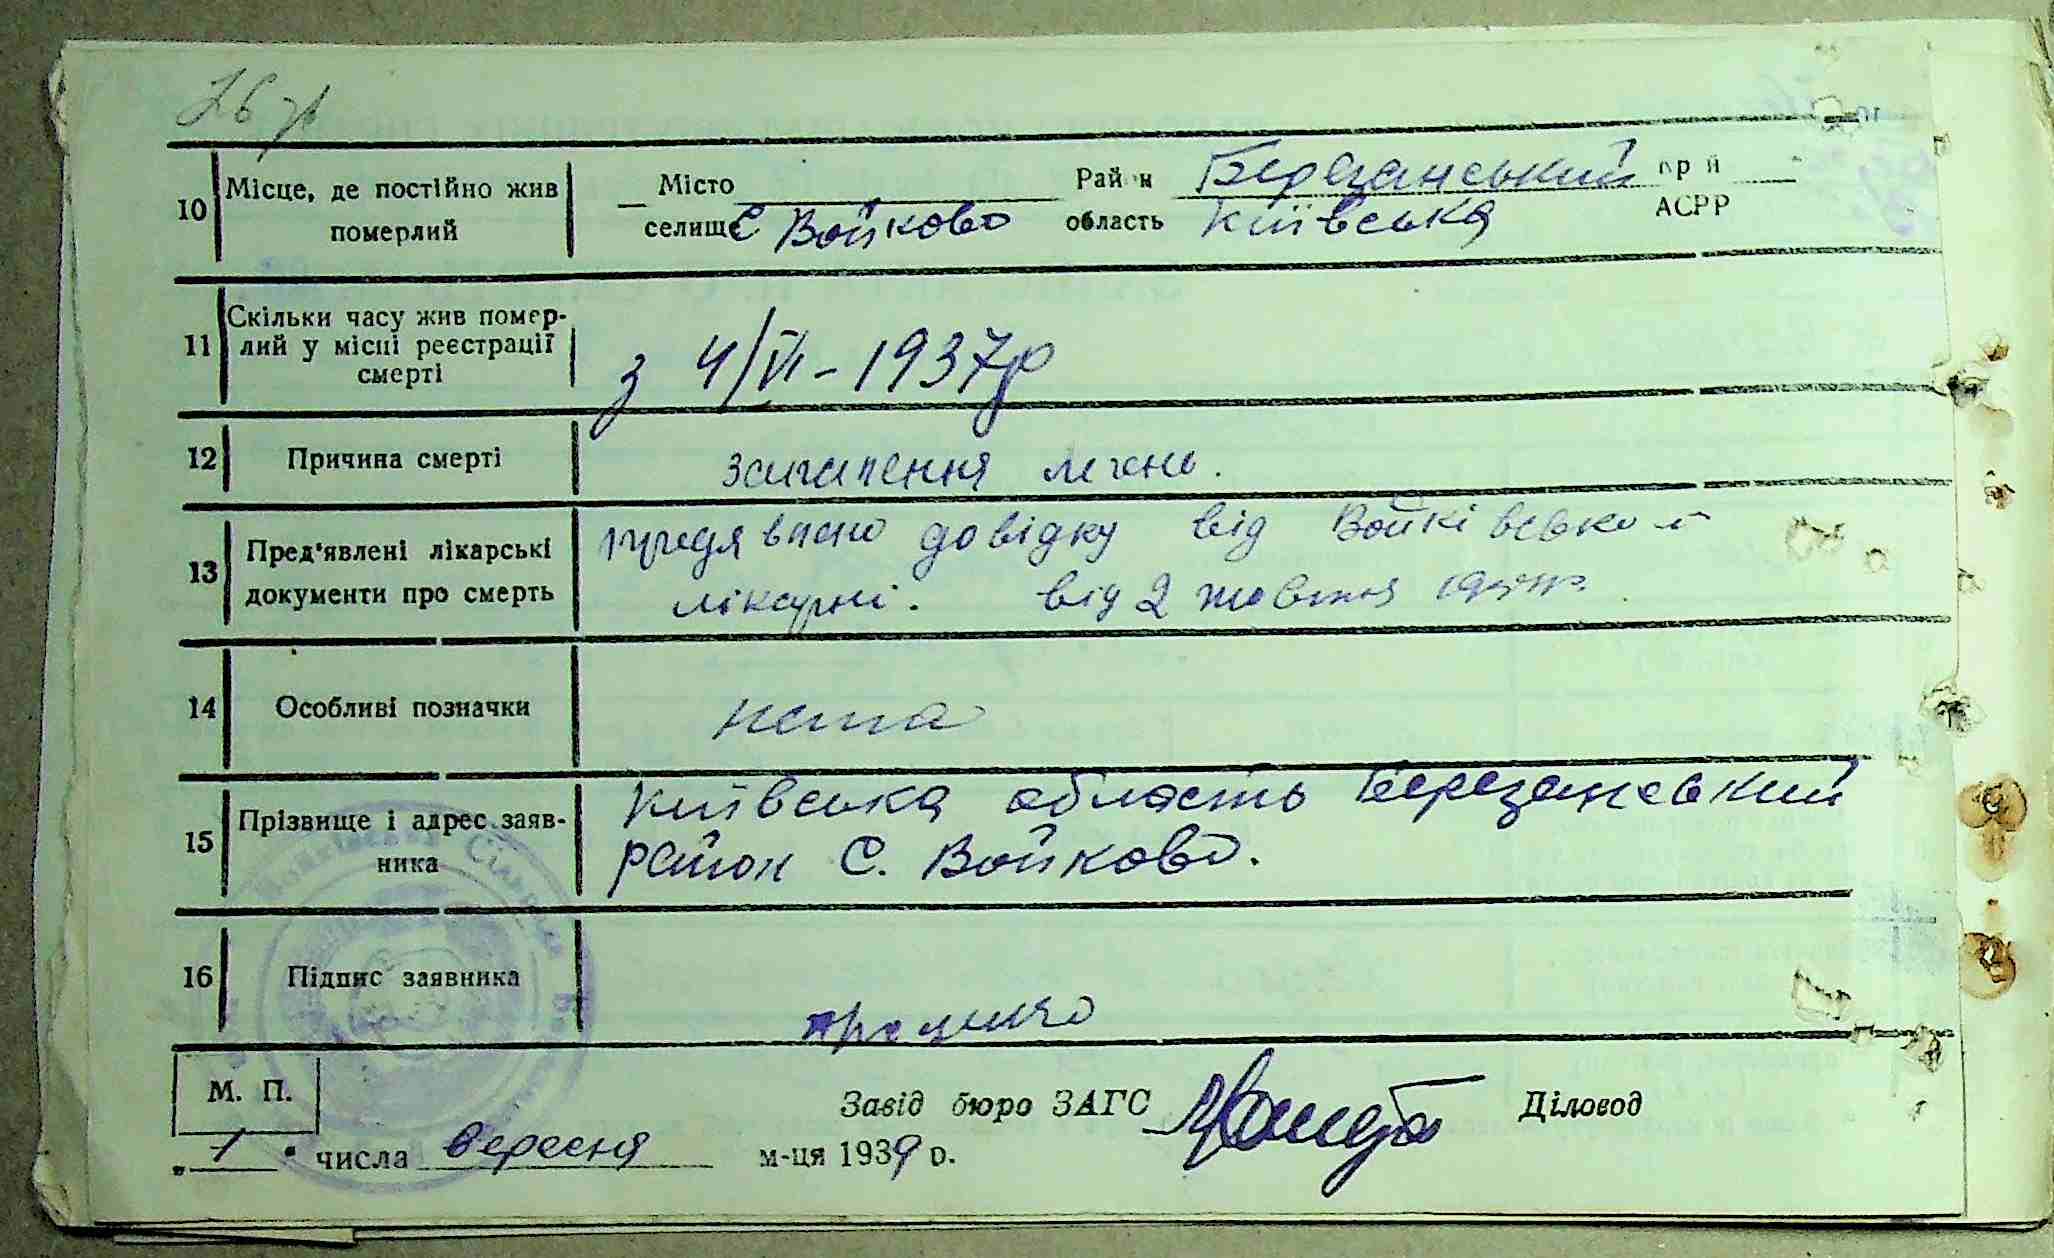 10 Місце, де постійно жив померлий
Місто Район Березанський край
селище с Войково область Київська АСРР
11 Скільки часу жив помер-
лий у місці реєстрації
смерті
з 4/VI - 1937р
12 Причина смерті запалення легень.
13 Пред'явлені лікарські
документи про смерть
довідку від Войківської
лікарні. від 2 жовтня
14 Особливі позначки нема
15 Прізвище і адрес заяв-
ника
Київська область Березанський
район с. Войково.
16 Підпис заявника
М. П.
Завід бюро ЗАГС Діловод
„ 1 " числа вересня м-ця 1939 р.